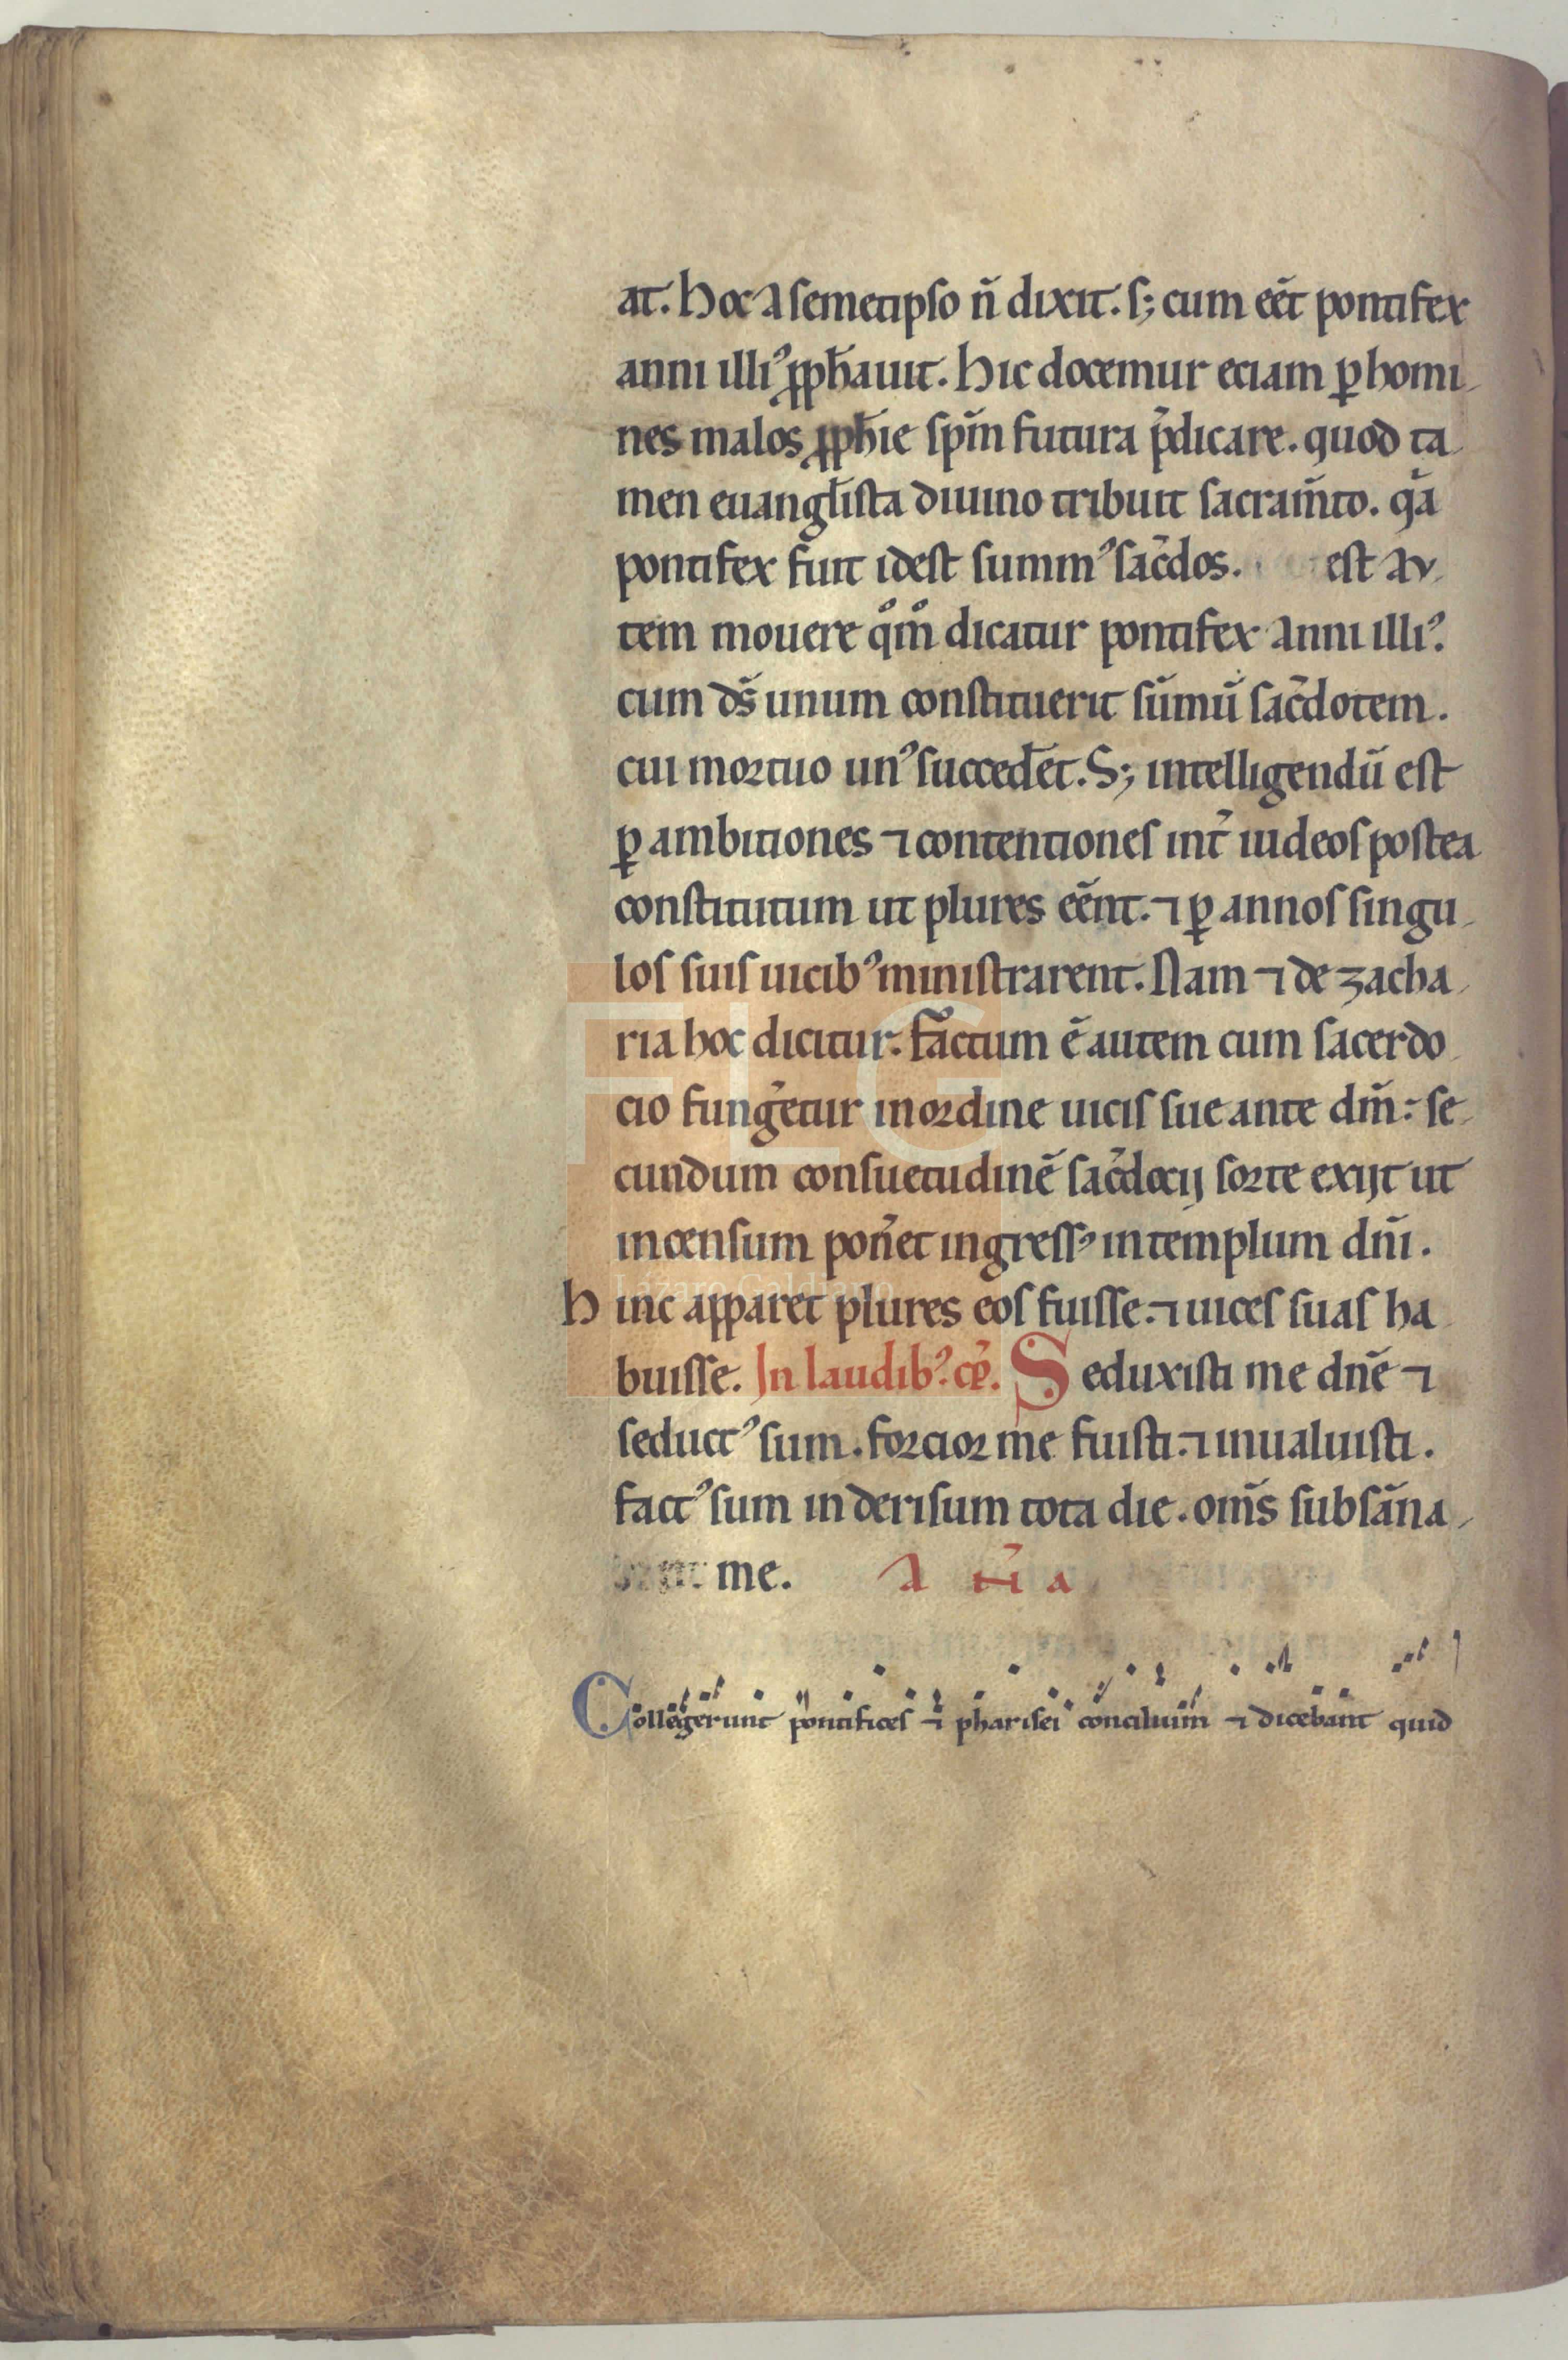 at. hoc a semetipso n̄ dixit. s; cum eēt pontifex
anni illiꝰ ꝓph̄auit. hic docemur eciam ꝑ homi
nes malos ꝓph̄ie sp̄m futura p̄dicare. quod ta
men euangl̄ista diuino tribuit sacram̄to. q̄a
pontifex fuit idest summꝰ sac̄dos. est au
tem mouere qͦmͦ dicatur pontifex anni illiꝰ
cum ds̄ unum constituerit sūmū sac̄dotem.
cui mortuo unꝰ succed̄et. S; intelligendū est
ꝑ ambitiones ⁊ contentiones int̄ iudeos postea
constitutum ut plures eēnt. ⁊ ꝑ annos singu
los suis uicibꝰ ministrarent. Nam ⁊ de zacha
ria hoc dicitur. factum ē autem cum sacerdo
cio funḡetur in ordine uicis sue ante dm̄. se
cundum consuetudinē sac̄docij sorte exijt ut
incensum pon̄et ingressꝰ in templum dn̄i.
hinc apparet plures eos fuisse. ⁊ uices suas ha
buisse. In laudibꝰ. cp̄. Seduxisti me dn̄e ⁊
seductꝰ sum. forcior me fuisti. ⁊ inualuisti.
factꝰ sum in derisum tota die. om̄s subsān a
me. A Ñ a
Collegerunt pontifices ⁊ pharisei concilium ⁊ dicebant quid